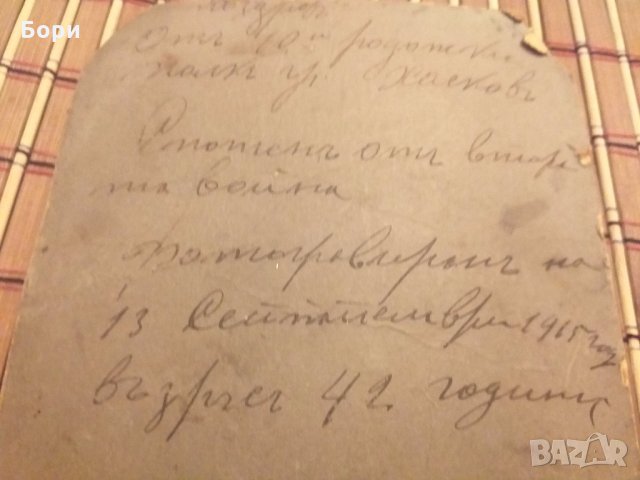 Бори
отъ 10и родопски
полкъ гр. Хасково
Спомень отъ втора
та война
Фотографиранъ на
13 Септември 1915 год
възрасъ 42 години
BAZAR